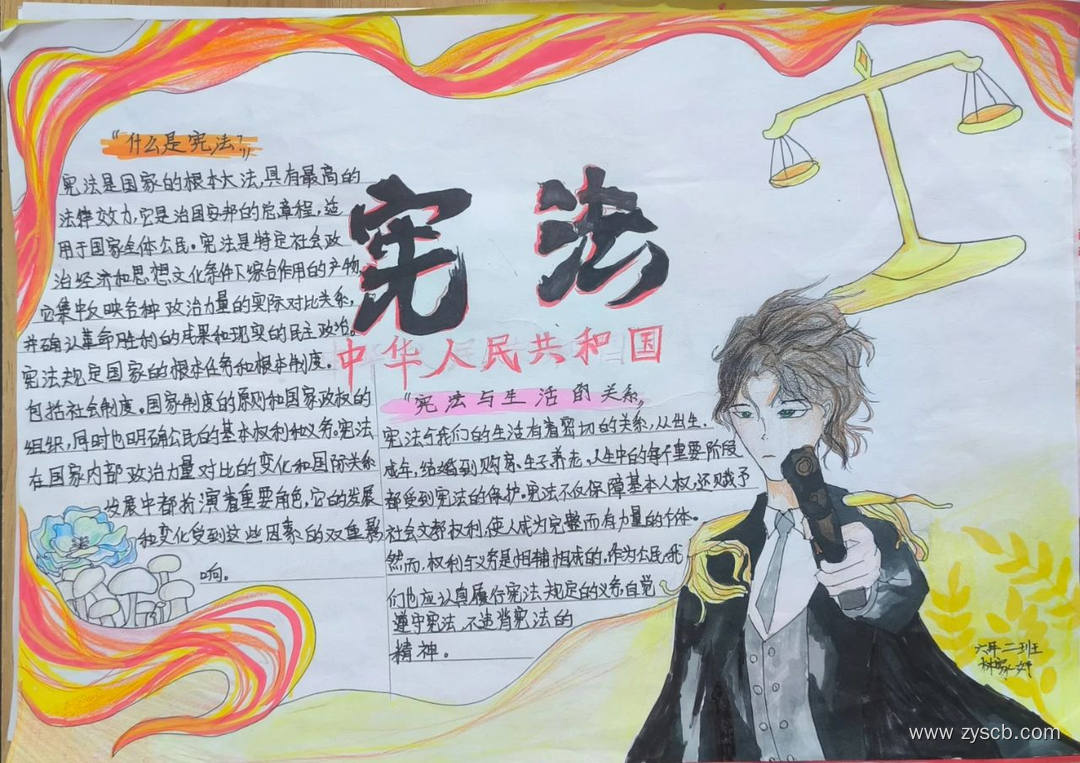 “什么是宪法?”
宪法是国家的根本大法,具有最高的
法律效力,它是治国安邦的总章程,适
用于国家全体公民。宪法是特定社会政
治经济和思想文化条件下综合作用的产物,
它集中反映各种政治力量的实际对比关系,
并确认革命胜利的成果和现实的民主政治。
宪法规定国家的根本任务和根本制度。
包括社会制度。国家制度的原则和国家政权的
组织,同时也明确公民的基本权利和义务。宪法
在国家内部政治力量对比的变化和国际关系
发展中都扮演着重要角色,它的发展
和变化受到这些因素的双重影
响。
宪法
中华人民共和国
“宪法与生活的关系”
宪法与我们的生活有着密切的关系,从出生.
成年,结婚到购房、生子养老,人生中的每个重要阶段
都受到宪法的保护。宪法不仅保障基本人权,还赋予
社会文都权利,使人成为完整而有力量的个体。
然而,权利与义务是相辅相成的,作为公民,我
们也应认真履行宪法规定的义务,自觉
遵守宪法,不违背宪法的
精神。
六年二班
林家妤
www.zyscb.com